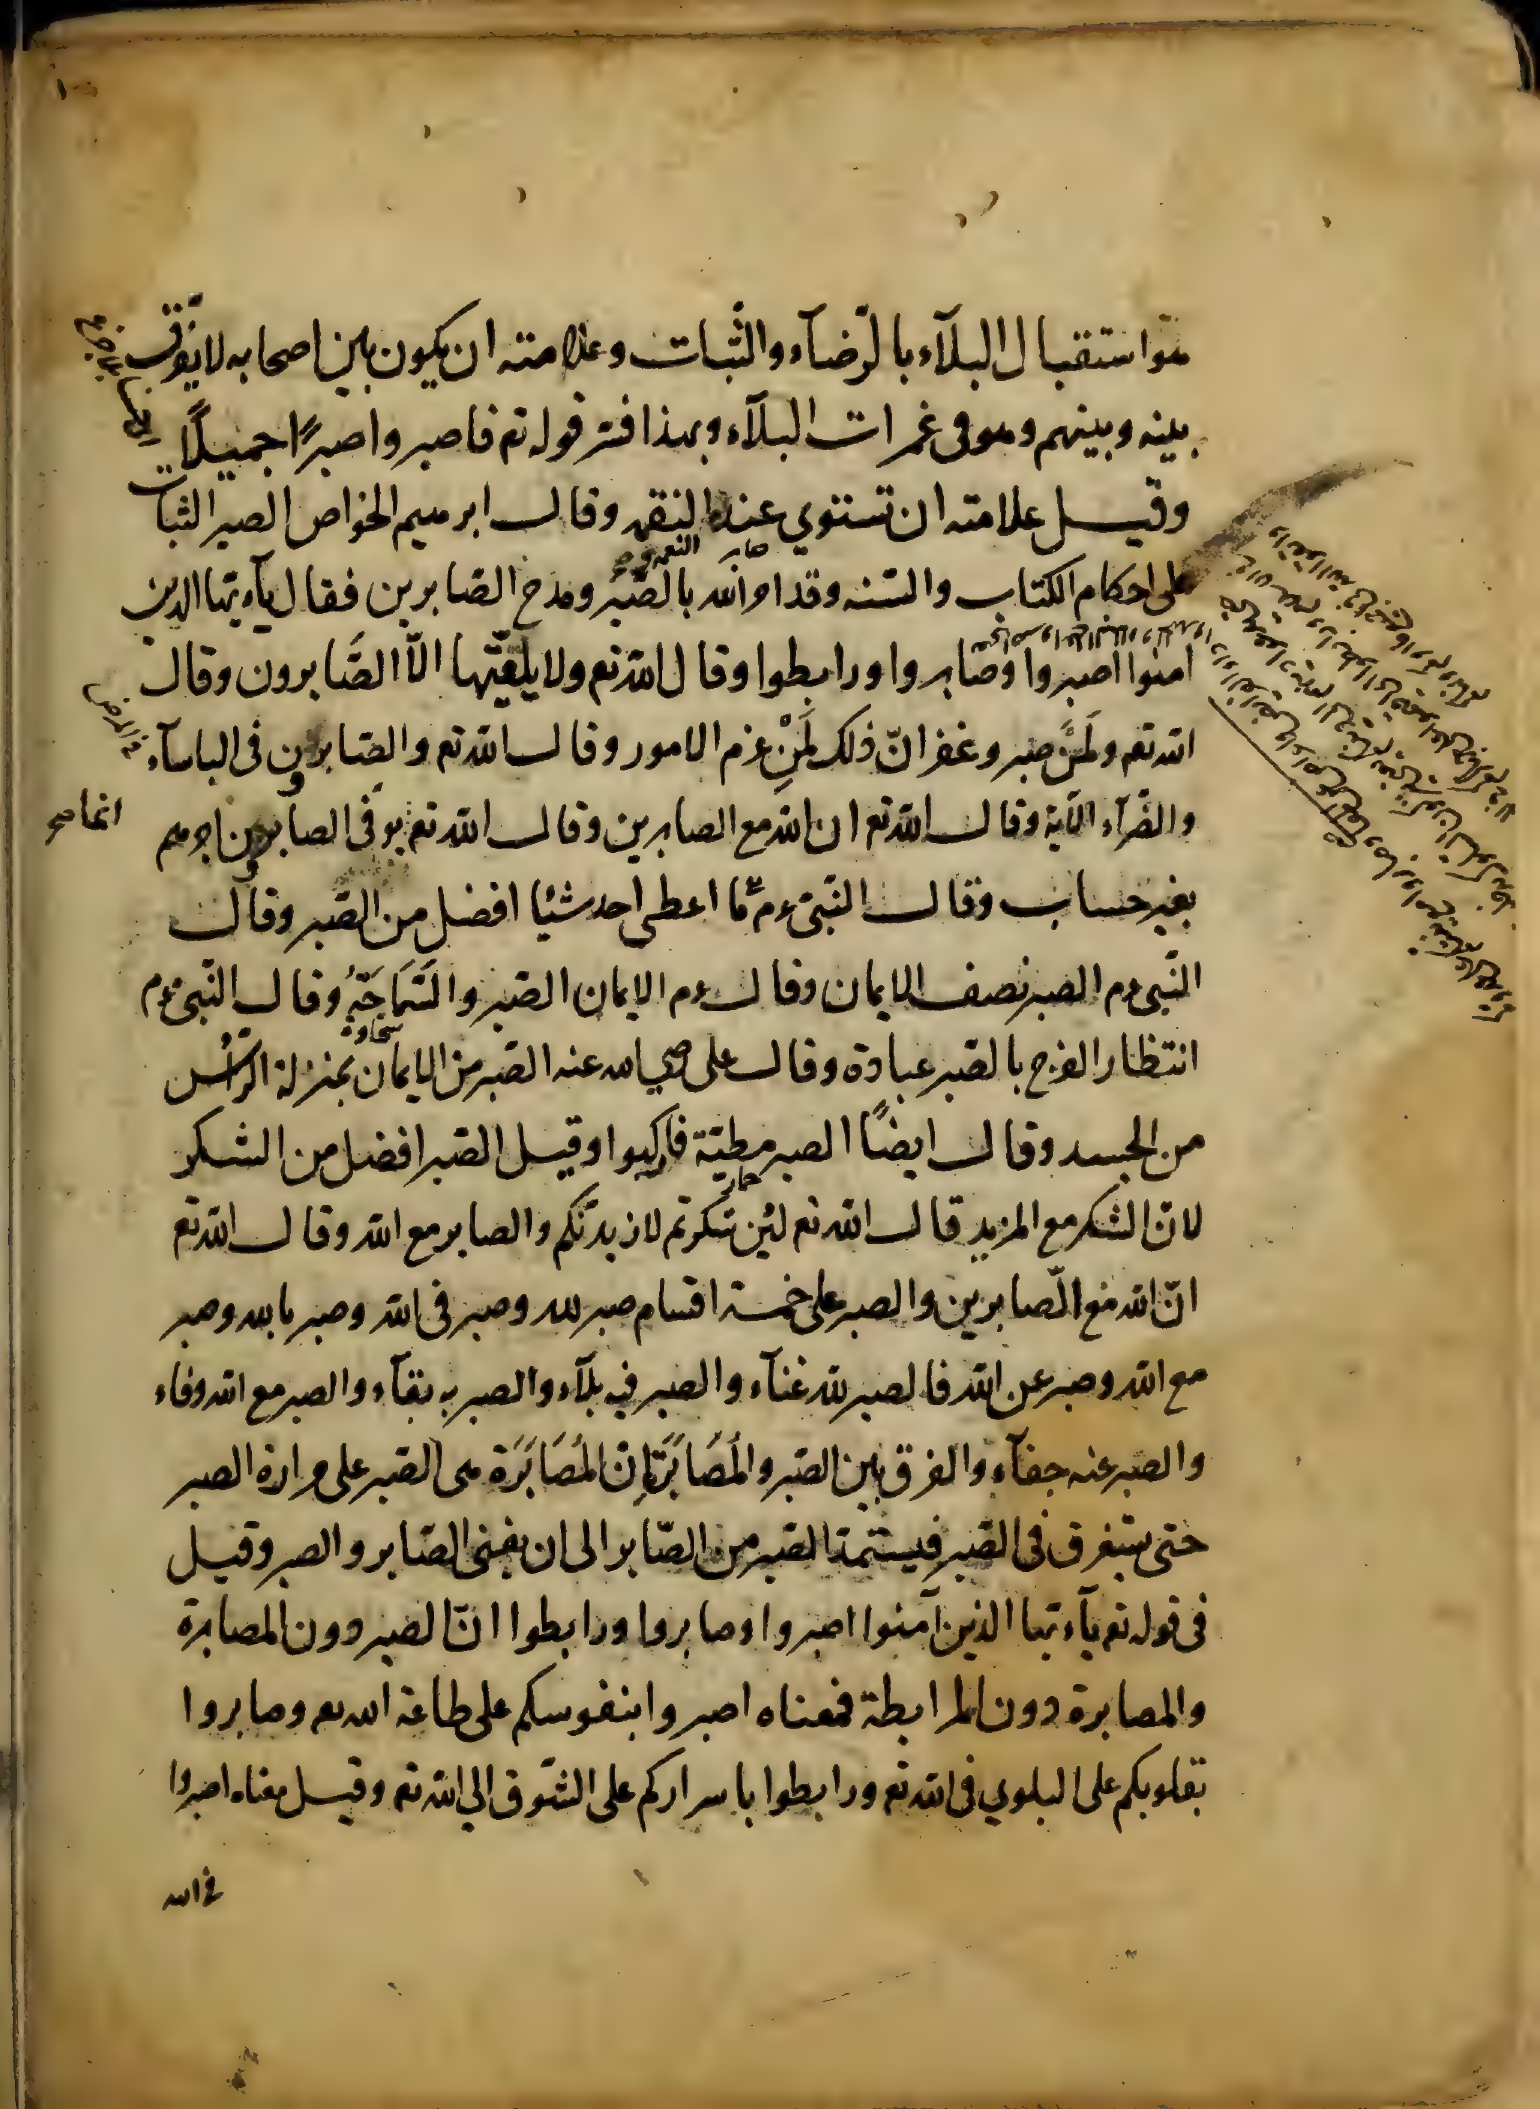 هو استقبال البلآء بالرّضآء والثّبات وعلامته ان يكون بين اصحابه لا يفرّق
بينه وبينهم وهو فى غمرات البلآء وبهذا فسّر قوله تع فاصبر واصبرًا جميلًا
وقيل علامته ان تستوي عنده النقمه وقال ابرهيم الخواص الصبر الثبات
على احكام الكتاب والسّنه وقد امر الله بالصّبر ومدح الصّابرين فقال يآءيّها الذين
امنوا اصبروا وصابروا ورابطوا وقال الله تع ولا يلقّيها الّا الصّابرون وقال
الله تع ولمَن صبر وغفر انّ ذلك لَمِنْ عزم الامور وقال الله تع والصّابرون فى الباسآء
والضّرآء الآية وقال الله تع ان الله مع الصابرين وقال الله تع يوفّى الصابرون اجرهم
انما صح
بغير حساب وقال النّبىّ عم ما اعطى احد شيئا افضل من الصّبر وقال
النّبى عم الصبر نصف الايمان وقال عم الايمان الصّبر والسَّمَاحَةُ وقال النّبى عم
سخاوة
انتظار الفرج بالصّبر عبادة وقال على رضي الله عنه الصّبر من الايمان بمنزلة الرّأس
من الجسد وقال ايضًا الصبر مطيّة فاركبوا وقيل الصّبر افضل من الشكر
لانّ الشكر مع المزيد قال الله تع لئن شكرتم لازيدنّكم والصابر مع الله وقال الله تع
انّ الله مع الصّابرين والصبر على خمسة اقسام صبر لله وصبر فى الله وصبر بالله وصبر
مع الله وصبر عن الله فالصبر لله غنآء والصبر فيه بلآء والصبر به بقآء والصبر مع الله وفاء
والصبر عنه جفآء والفرق بين الصّبر والمُصَابَرَة انّ المُصَابَرَة هى الصّبر على مرارة الصبر
حتى يستغرق فى الصّبر فيستمدّ الصّبر من الصّابر الى ان يفنى الصّابر والصبر وقيل
فى قوله تع يآءيّها الذين آمنوا اصبروا وصابروا ورابطوا انّ الصبر دون المصابرة
والمصابرة دون المرابطة فمعناه اصبروا بنفوسكم على طاعة الله تع وصابروا
بقلوبكم على البلوي فى الله تع ورابطوا باسراركم على الشّوق الي الله تع وقيل معناه اصبروا
فى الله